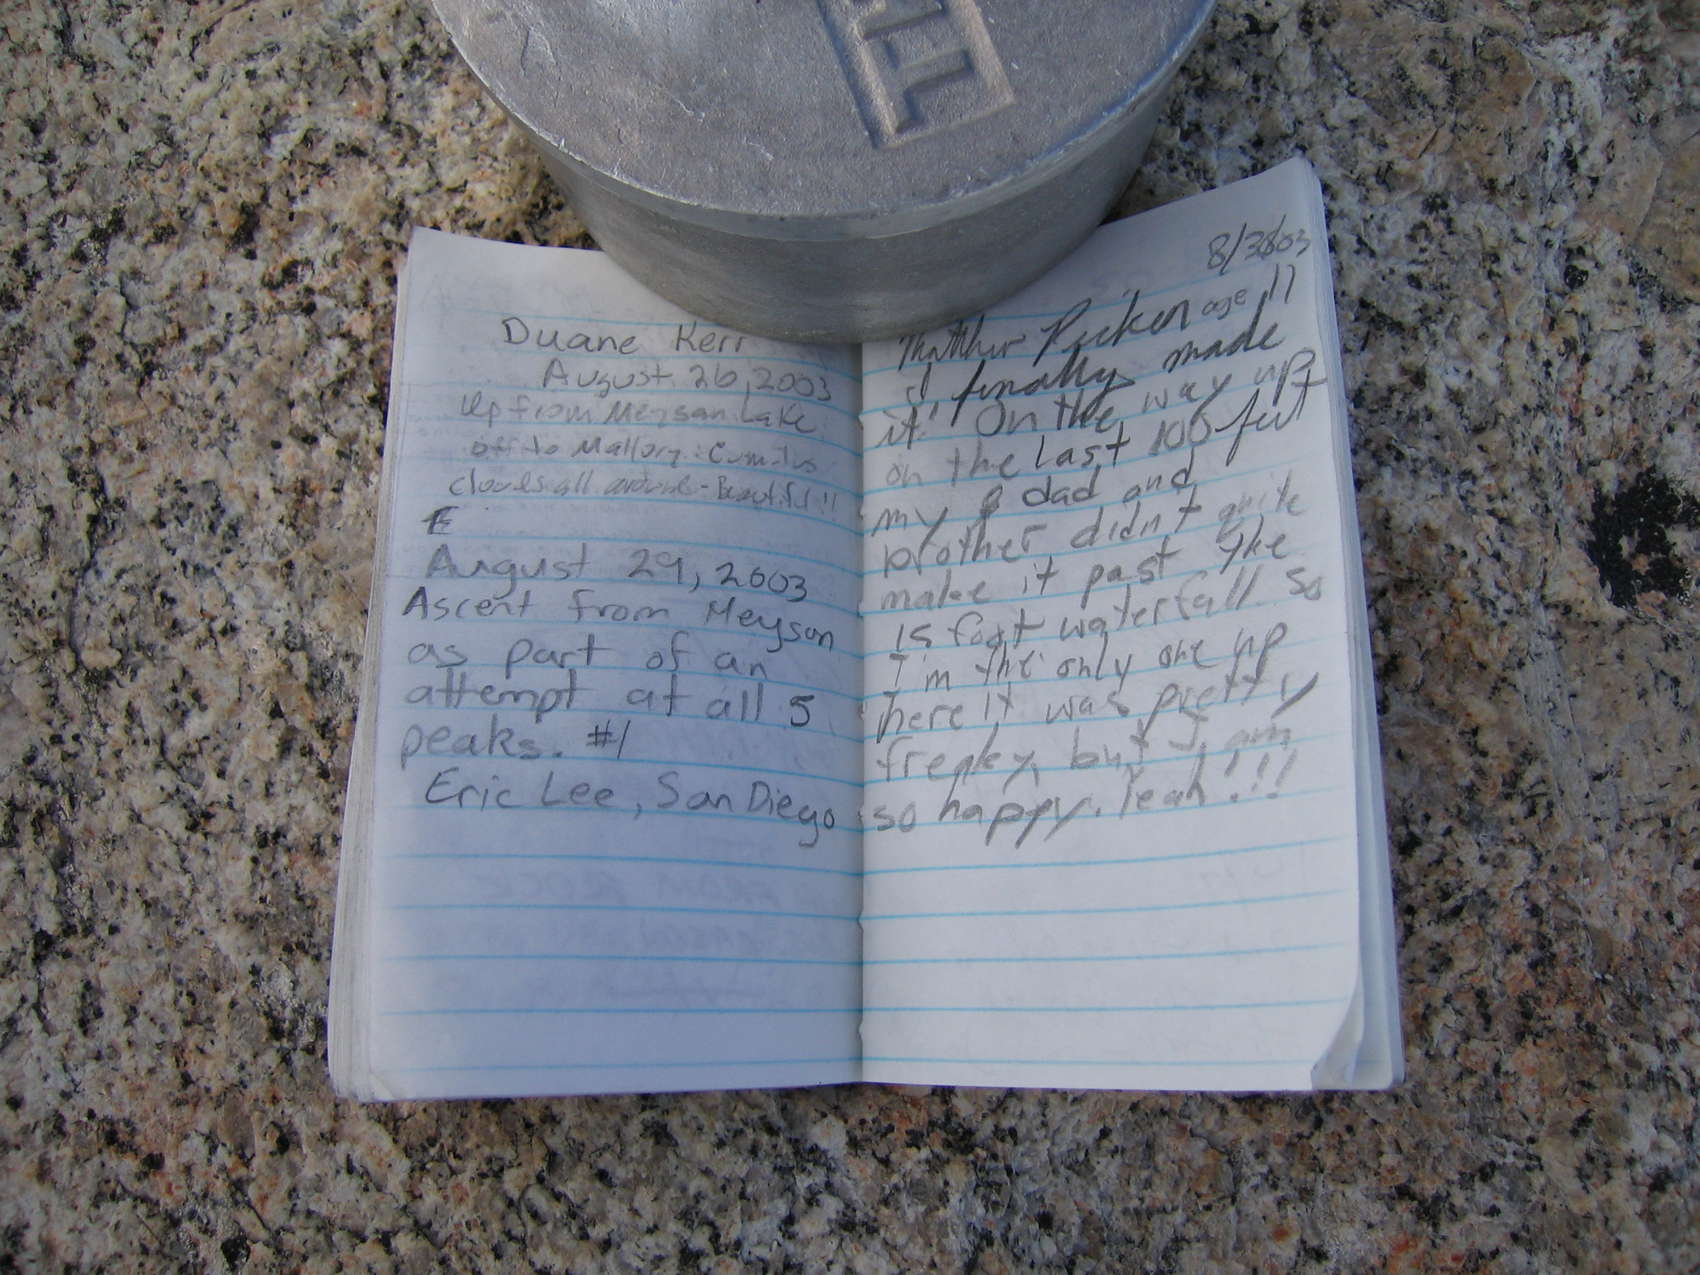 Duane Kerr
August 26, 2003
Up from Meysan Lake
off to Mallory. Cumulus
clouds all around - Beautiful!!
E
August 29, 2003
Ascent from Meyson
as part of an
attempt at all 5
peaks. #1
Eric Lee, San Diego
Picken age 11
I finally made
it! On the way up
on the last 100 feet
my dad and
brother didn't quite
make it past the
15 foot waterfall. So
I'm the only one up
here It was pretty
freaky, but I am
so happy. Yeah!!!